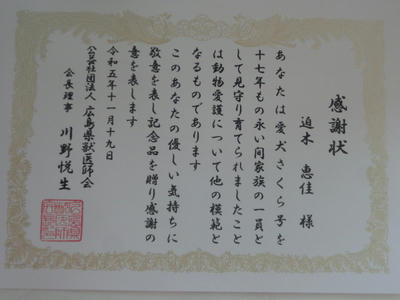 感謝状
迫木 恵佳 様
あなたは愛犬さくら号を
十七年もの永い間家族の一員と
して見守り育てられましたこと
は動物愛護について他の模範と
なるものであります
このあなたの優しい気持ちに
敬意を表し記念品を贈り感謝の
意を表します
令和五年十一月十九日
公益社団法人 広島県獣医師会
会長理事 川野悦生